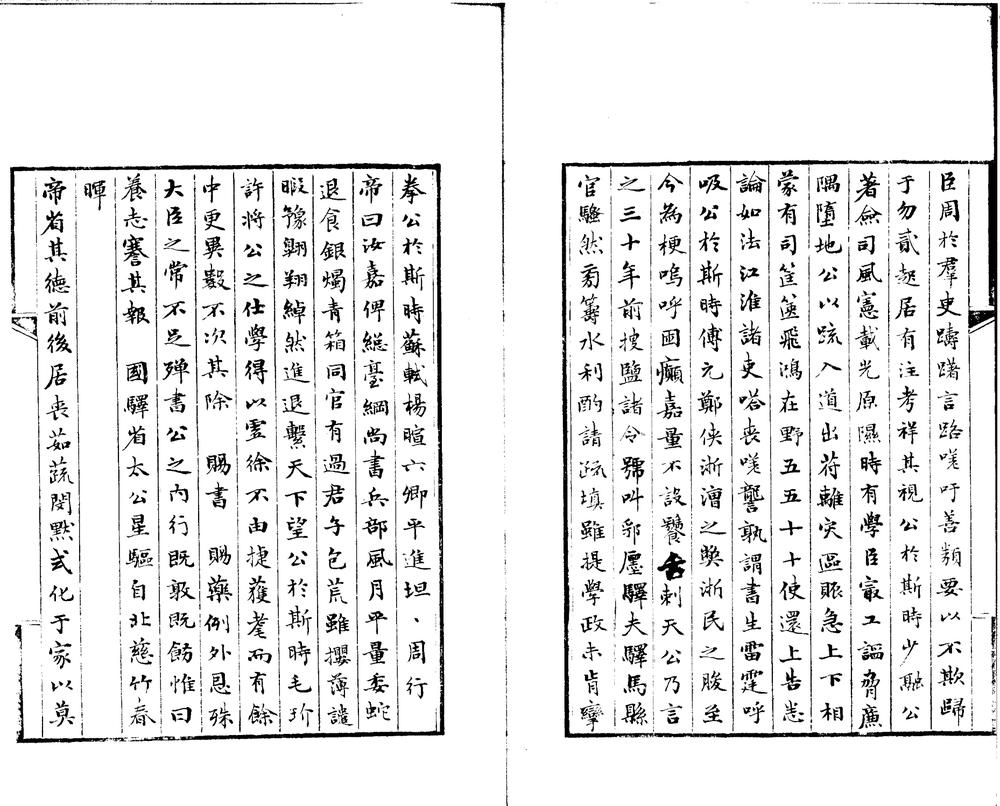 臣周於羣吏躊躇言路嘆吁善類要以不欺歸
于勿貳起居有注考祥其視公於斯時少融公
著僉司風憲載光原隰時有學臣寂工謳脅廉
隅墮地公以疏入道出苻離宊區賑急上下相
蒙有司筐篋飛鴻在野五五十十使還上告恚
論如法江淮諸吏嗒喪嘆讋孰謂書生雷霆呼
吸公於斯時傅元鄭俠浙漕之獘浙民之朘至
今為梗嗚呼囷癲嘉量不設饔舍刺天公乃言
之三十年前搜鹽諸令號叫郛廛驛夫驛馬縣
官騷然芻籌水利酌請疏填雖提學政未肯孿
拳公於斯時蘇軾楊暄六卿平進坦、周行
帝曰汝嘉俾緫臺綱尚書兵部風月平量委蛇
退食銀燭青箱同官有過君子包荒雖攖薄譴
暇豫翱翔綽然進退繫天下望公於斯時毛玠
許將公之仕學得以靈徐不由捷獲耄而有餘
中更異數不次其除　賜書　賜藥例外恩殊
大臣之常不足殫書公之內行既敦既飭惟曰
養志謇其報　國驛省太公星驅自北慈竹春
暉
帝省其德前後居喪茹蔬閔默式化于家以莫